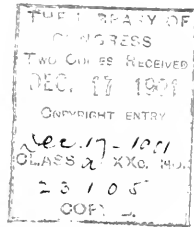 THE LIBRARY OF
CONGRESS
TWO COPIES RECEIVED
DEC. 17 1901
COPYRIGHT ENTRY
Dec. 17-1901
CLASS a XXc. No.
23105
COPY